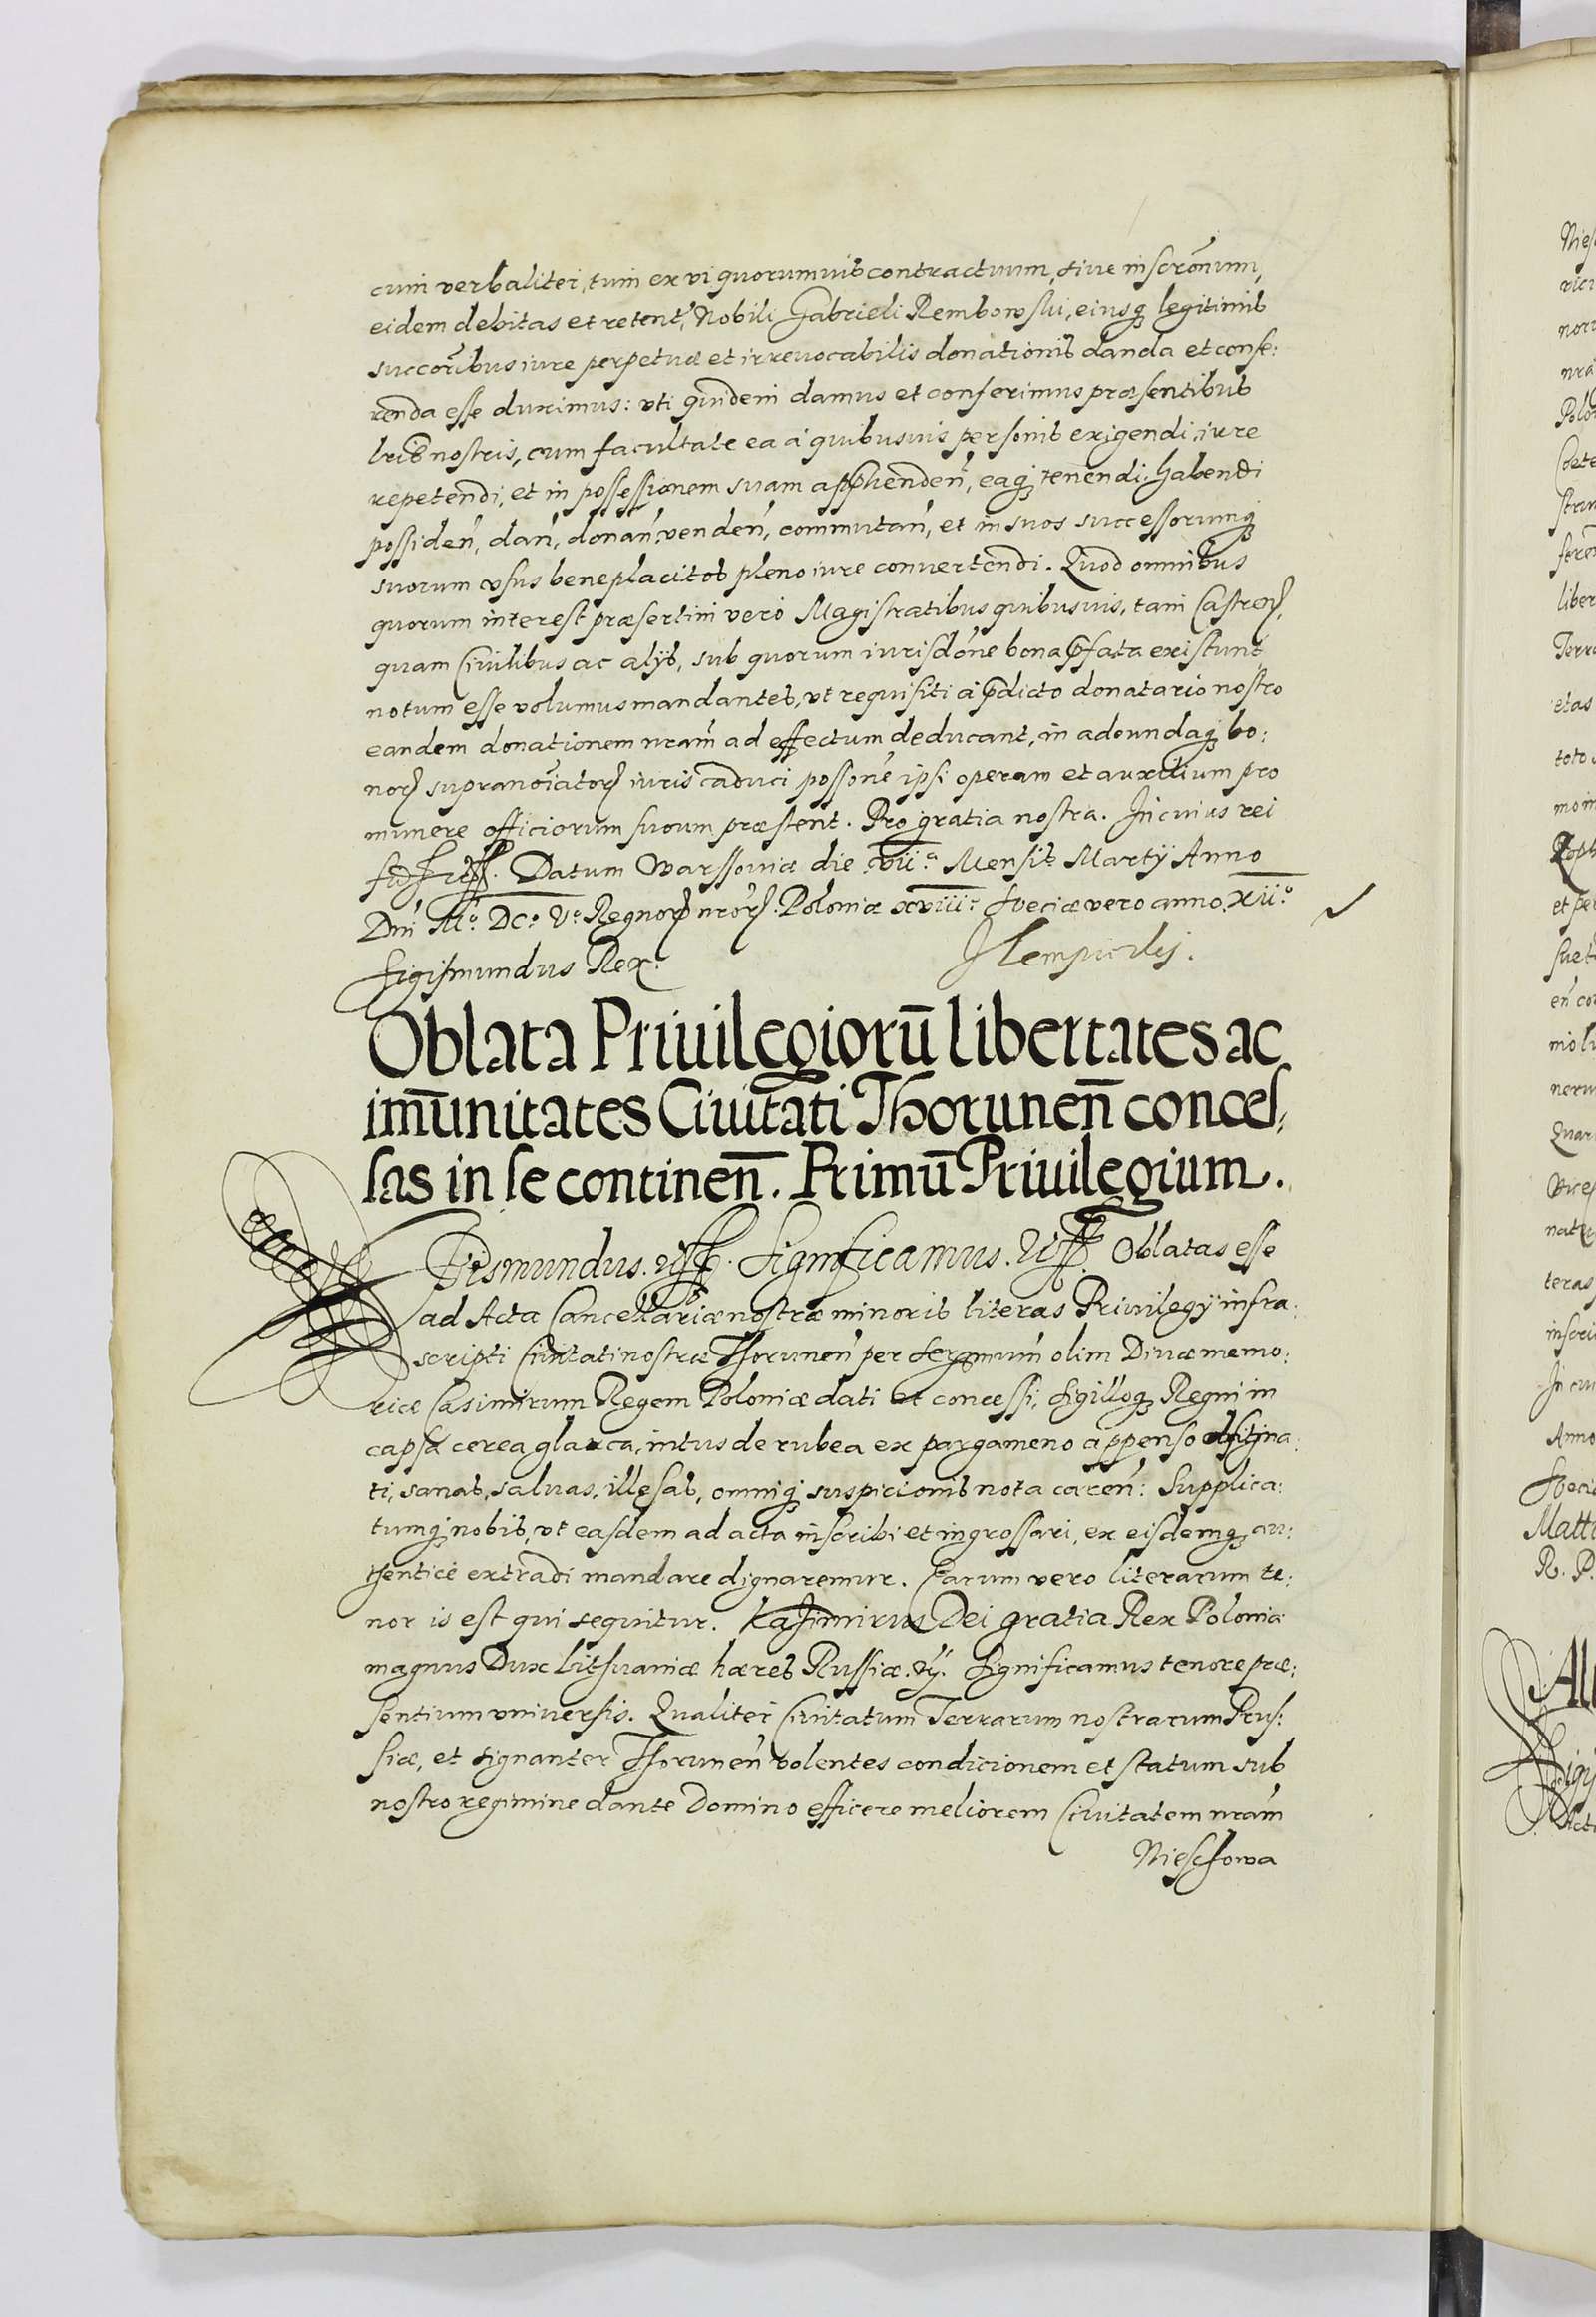 cum verbaliter, tum ex vi quorumuis contractuum, siue inscrõnum,
eidem debitas et retent̃, Nobili Gabrieli Rembowski, eiusq; legitimis
succorĩbus iure perpetuæ et irreuocabilis donationis danda et confe:
renda esse duximus: vti quidem damus et conferimus præsentibus
lris̃ nostris, cum facultate ea à quibusuis personis exigendi, iure
repetendi, et in possessionem suam appħenden̄, eaq; tenendi, habendi
possiden̄, dan̄, donan̄, venden̄, commutan̄, et in suos successorumq;
suorum vsus beneplacitos pleno iure conuertendi. Quod omnibus
quorum interest præsertim vero Magistratibus quibusuis, tam Castren̄,
quam Ciuilibus ac alijs, sub quorum iurisdõne bona p̄fata existunt
notum esse volumus mandantes, vt requisiti à p̄dicto donatario nostro
eandem donationem nram̄ ad effectum deducant, in adeundaq; bo:
norꝝ supranoĩatorꝝ iuris caduci possone̅ ipsi operam et auxilium pro
munere officiorum suoum præstent. Pro gratia nostra. In cuius rei
Datum Warssouiæ die vii.a Mensis Martij Anno
Dni Mo. DCo. Vo. Regnorꝝ nrorꝝ. Poloniæ xviii.o Sveciæ vero anno. xii.o
Sigismundus Rex.
Oblata Priuilegiorū libertates ac
im̄unitates Ciuitati Thorunen̄ conces,
sas in se continen̄. Primū Priuilegium.
Sigismundus. Significamus. Oblatas esse
ad Acta Cancellariæ nostræ minoris literas Priuilegij infra:
scripti Ciuitati nostræ Thorunen̄ per Sermum̄ olim Diuæ memo:
riæ Casimirum Regem Poloniæ dati et concessi, sigilloq; Regni in
capsa cerea glauca, intus de rubea ex pargameno appenso obsigna:
ti, sanas, saluas, illęsas, omniq; suspicionis nota caren̄: Supplica:
tumq; nobis, vt easdem ad acta inscribi et ingrossari, ex eisdemq; au:
thenticè extradi mandare dignaremur. Earum vero literarum te:
nor is est qui sequitur. Kasimirus Dei gratia Rex Poloniæ
magnus Dux Lithuaniæ hæres Russiæ. Significamus tenore præ:
sentium vniuersis. Qualiter Ciuitatum Terrarum nostrarum Prus:
siæ, et signanter Thorunen̄ volentes condicionem et statum sub
nostro regimine dante Domino efficere meliorem Ciuitatem nram̄
Nieschowa